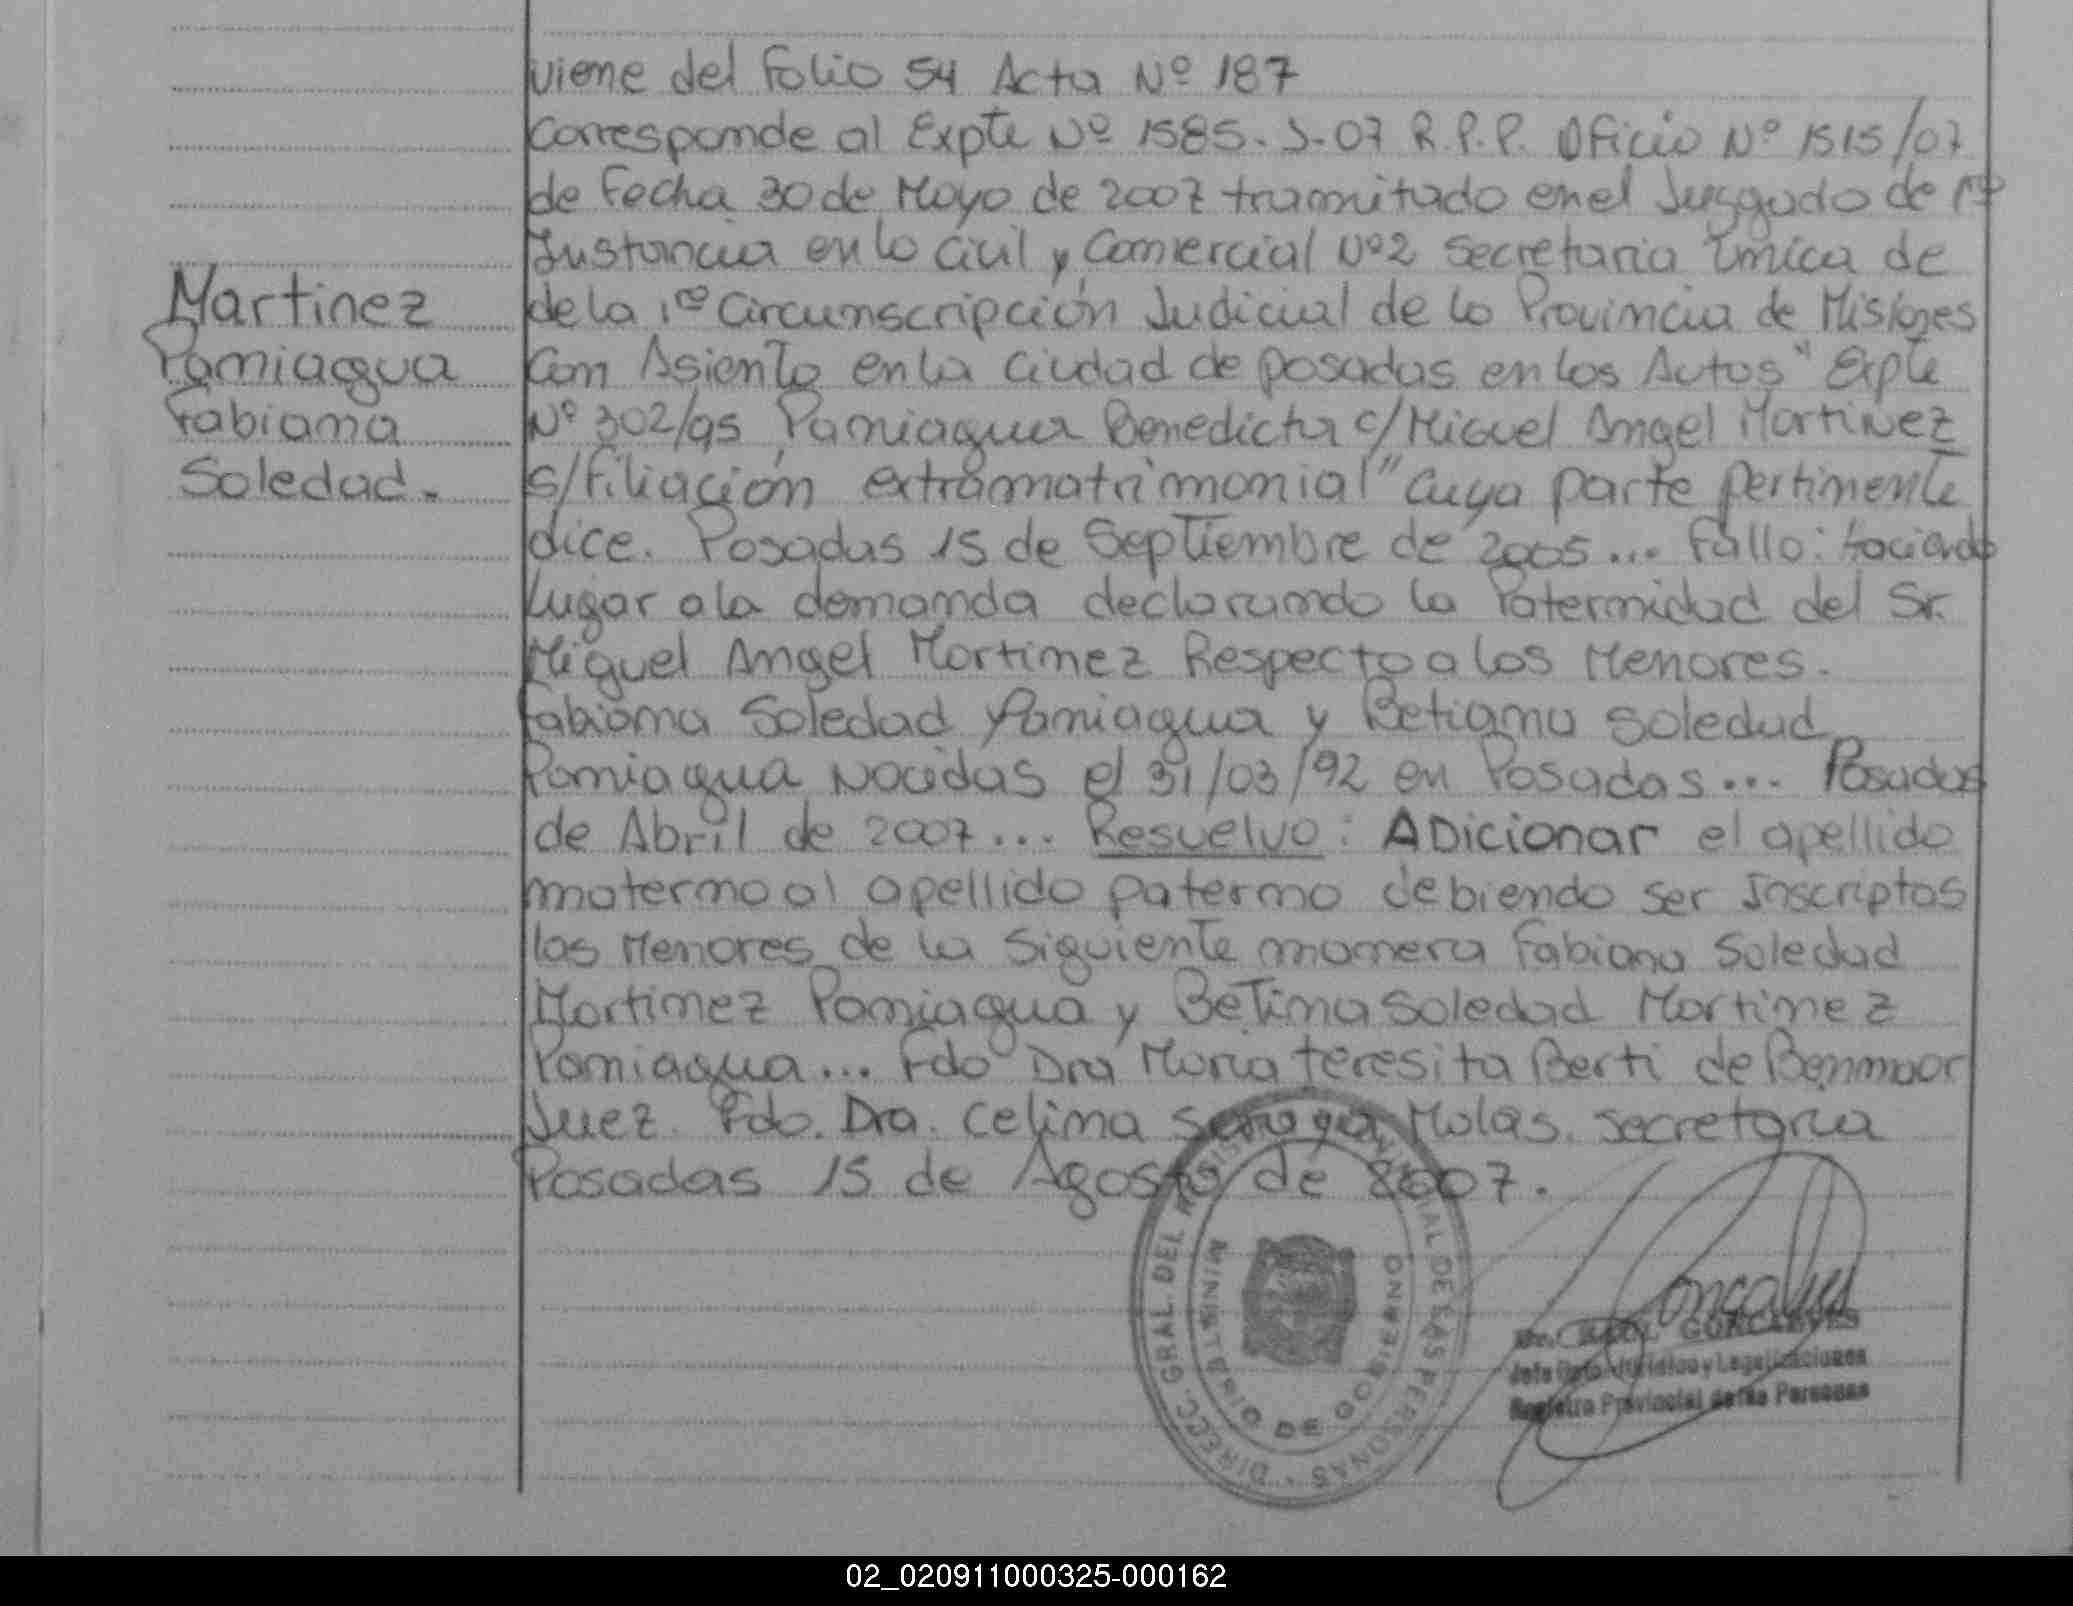 viene del Folio 54 Acta Nº 187
Corresponde al Expte Nº 1585-S-07 R.P.P. Oficio Nº 1515/07
de Fecha 30 de Mayo de 2007 tramitado en el Juzgado de 1ª
Instancia en lo Civil y Comercial Nº2 Secretaria Unica de
de la 1ra Circunscripción Judicial de la Provincia de Misiones
Con Asiento en la Ciudad de Posadas en los Autos "Expte
Nº 302/95 Paniagua Benedicta c/Miguel Angel Martinez
s/filiación extramatrimonial" Cuya parte pertinente
dice. Posadas 15 de Septiembre de 2005... Fallo: Haciendo
Lugar a la demanda declarando la Paternidad del Sr.
Miguel Angel Martinez Respecto a los Menores.
Fabiana Soledad Paniagua y Betiana Soledad
Paniagua Nacidas el 31/03/92 en Posadas... Posadas
de Abril de 2007... Resuelvo: ADicionar el apellido
materno al apellido paterno debiendo ser Inscriptas
las Menores de la Siguiente manera Fabiana Soledad
Martinez Paniagua y Betina Soledad Martinez
Paniagua... Fdo Dra Maria teresita Berti de Benmaor
Juez. Fdo. Dra. Celina Molas. Secretaria
Posadas 15 de Agosto de 2007.
Martinez
Paniagua
Fabiana
Soledad.
DIRECC. GRAL. DEL REGISTRO PROVINCIAL DE LAS PERSONAS
MINISTERIO DE GOBIERNO
Goncalves
GONCALVES
Jefe Dpto. Jurídico y Legalizaciones
Registro Provincial de las Personas
02_020911000325-000162